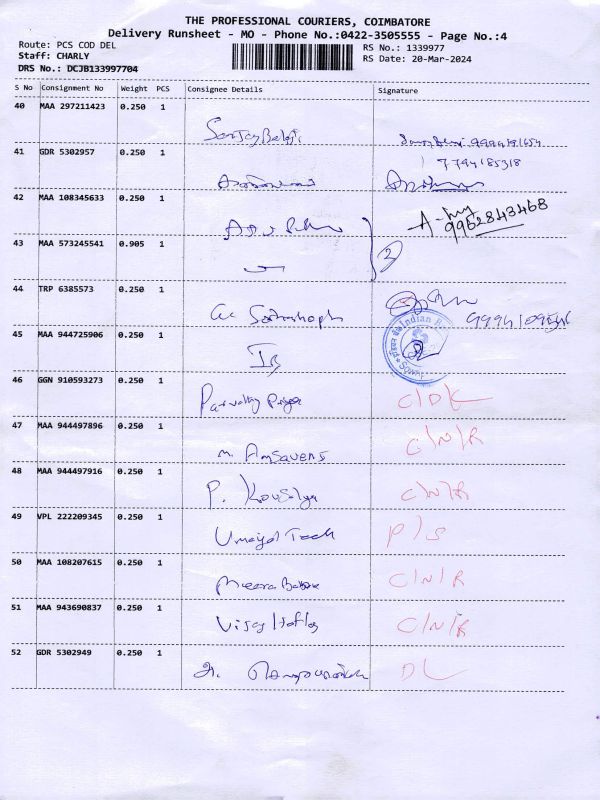 THE PROFESSIONAL COURIERS, COIMBATORE
Delivery Runsheet - MO - Phone No.:0422-3505555 - Page No.:4
Route: PCS COD DEL
Staff: CHARLY
DRS No.: DCJB133997704
RS No.: 1339977
RS Date: 20-Mar-2024
S No Consignment No Weight PCS Consignee Details Signature
40 MAA 297211423 0.250 1
41 GDR 5302957 0.250 1
7794185318
42 MAA 108345633 0.250 1
9962843468
43 MAA 573245541 0.905 1
2
44 TRP 6385573 0.250 1
45 MAA 944725906 0.250 1
Indian
46 GGN 910593273 0.250 1 Parvathy Priya
47 MAA 944497896 0.250 1 M. Amsaveni C/N/R
48 MAA 944497916 0.250 1 P. Kousalya C/N/R
49 VPL 222209345 0.250 1 Umayal Tech P/S
50 MAA 108207615 0.250 1 Meera C/N/R
51 MAA 943690837 0.250 1 Vijay C/N/R
52 GDR 5302949 0.250 1 DL